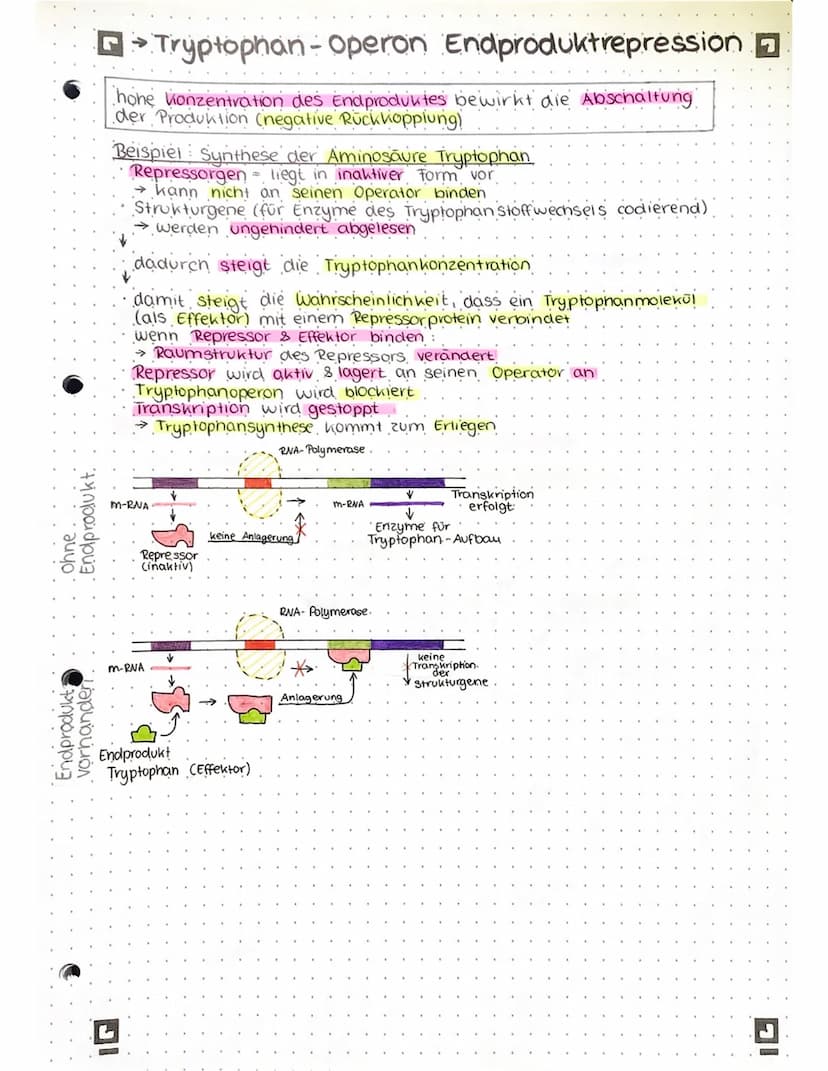 → Tryptophan-Operon Endproduktrepression
hohe Konzentration des Endproduktes bewirkt die Abschaltung
der Produktion (negative Rückkopplung)
Beispiel: Synthese der Aminosäure Tryptophan
· Repressorgen = liegt in inaktiver Form vor
→ kann nicht an seinen Operator binden
· Strukturgene (für Enzyme des Tryptophanstoffwechsels codierend)
↓ → werden ungehindert abgelesen
↓ · dadurch steigt die Tryptophankonzentration
· damit steigt die Wahrscheinlichkeit, dass ein Tryptophanmolekül
(als Effektor) mit einem Repressorprotein verbindet
· wenn Repressor & Effektor binden:
→ Raumstruktur des Repressors verändert
· Repressor wird aktiv & lagert an seinen Operator an
· Tryptophanoperon wird blockiert
· Transkription wird gestoppt
→ Tryptophansynthese kommt zum Erliegen
Ohne
Endprodukt
RNA-Polymerase
m-RNA
→
m-RNA
Transkription
erfolgt
keine Anlagerung
Enzyme für
Tryptophan-Aufbau
Repressor
(inaktiv)
Endprodukt
vorhanden
RNA-Polymerase
m-RNA
keine
Transkription
der
Strukturgene
→
Anlagerung
Endprodukt
Tryptophan (Effektor)